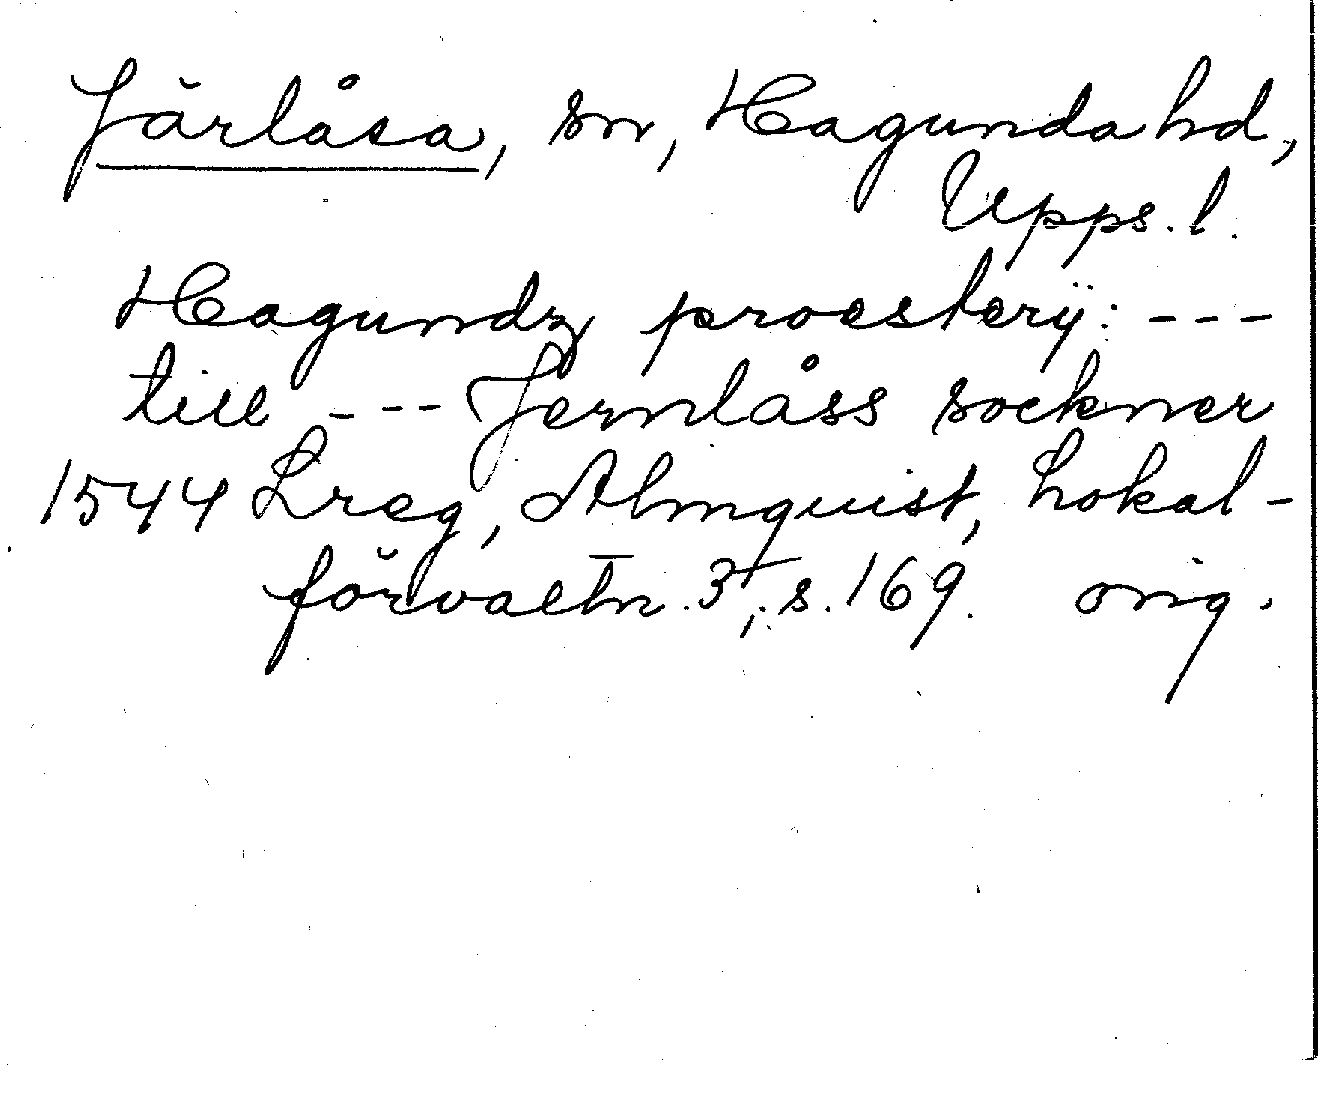 Järlåsa, sn, Hagunda hd,
Upps. l.
Hagundz proestery: ---
till --- Jernlåss sockner
1544 Lreg, Almquist, Lokal-
förvaltn. 3, s. 169. orig.